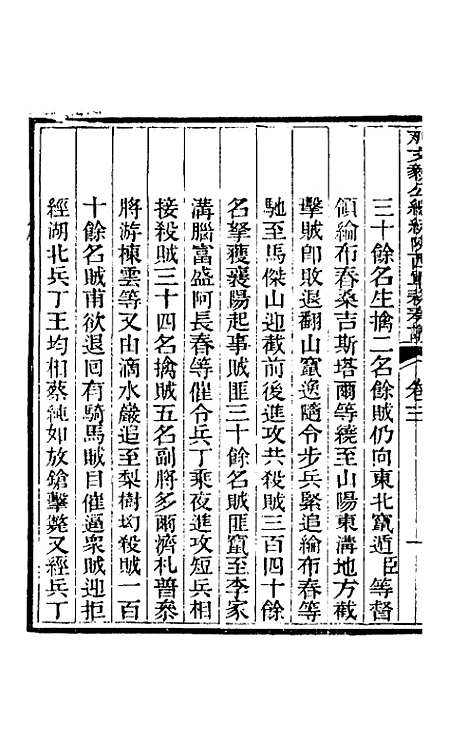 三十餘名生擒二名餘賊仍向東北竄遁臣等督
領綸布春桑吉斯塔爾等繞至山陽東溝地方截
擊賊卽敗退翻山竄逸隨令步兵緊追綸布春等
馳至馬傑山迎截前後進攻共殺賊三百四十餘
名拏獲襄陽起事賊匪三十餘名賊匪竄至李家
溝腦富盛阿長春等催令兵丁乘夜進攻短兵相
接殺賊三十四名擒賊五名副將多爾濟札普泰
將游棟雲等又由滴水巖追至梨樹坳殺賊一百
十餘名賊甫欲退回有騎馬賊目催逼衆賊迎拒
經湖北兵丁王均相蔡純如放鎗擊斃又經兵丁
卷三